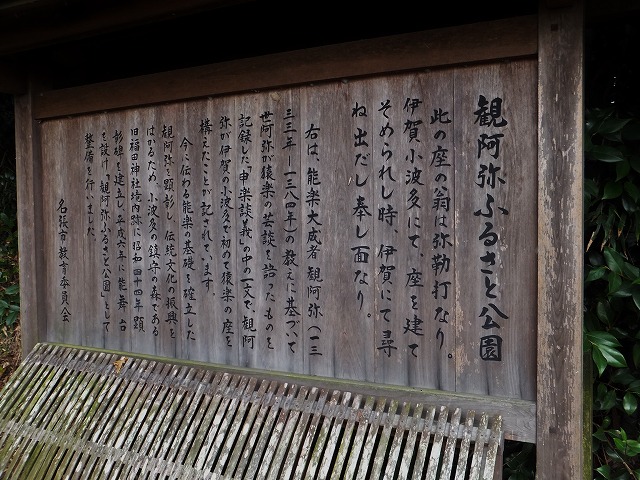 観阿弥ふるさと公園
此の座の翁は弥勒打なり。
伊賀小波多にて座を建て
そめられし時、伊賀にて尋
ね出だし奉し面なり。
右は、能楽大成者観阿弥(一三
三三年ー一三八四年)の教えに基づいて
世阿弥が猿楽の芸談を語ったものを
記録した「申楽談義」の中の一文で、観阿
弥が伊賀の小波多で初めて猿楽の座を
構えたことが記されています。
今に伝わる能楽の基礎を確立した
観阿弥を顕彰し、伝統文化の振興を
はかるため、小波多の鎮守の森である
旧福田神社境内跡に昭和四十四年顕
彰碑を建立し平成六年に能舞台
を設け「観阿弥ふるさと公園」として
整備を行いました。
名張市教育委員会